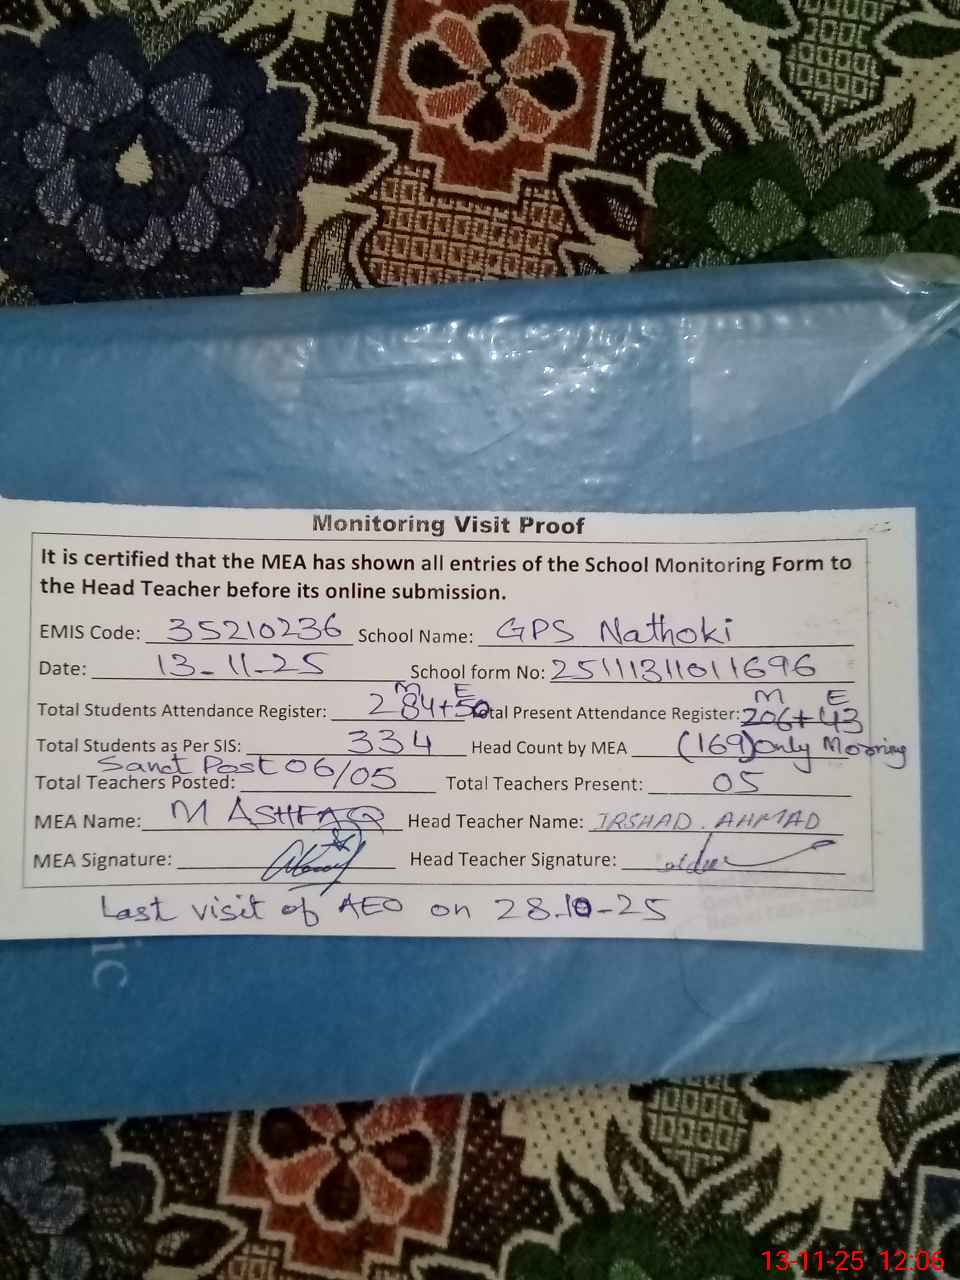 Monitoring Visit Proof
It is certified that the MEA has shown all entries of the School Monitoring Form to
the Head Teacher before its online submission.
EMIS Code: 35210236 School Name: GPS Nathoki
Date: 13-11-25 School form No: 25111311011696
M E M E
Total Students Attendance Register: 284+50 Total Present Attendance Register: 206+43
Total Students as Per SIS: 334 Head Count by MEA (169) Only Morning
Sanct Post 06/05
Total Teachers Posted: Total Teachers Present: 05
MEA Name: M ASHFAQ Head Teacher Name: IRSHAD. AHMAD
MEA Signature: Head Teacher Signature:
Last visit of AEO on 28-10-25
13-11-25 12:06